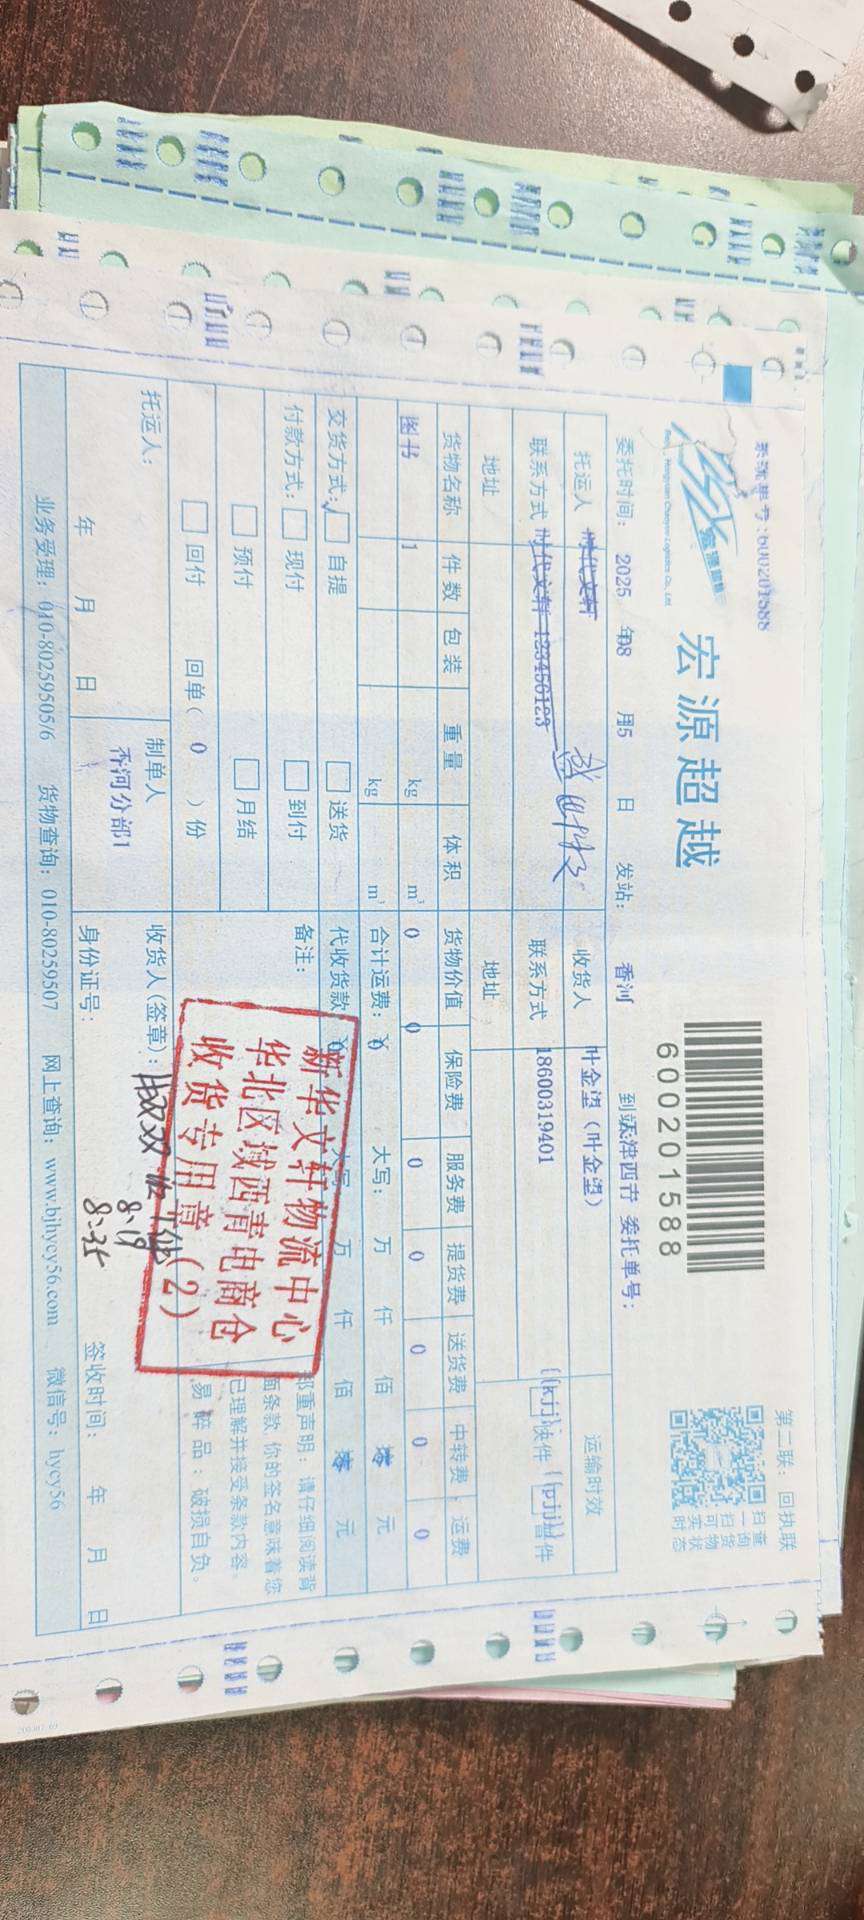 系统单号:600201588
第二联：回执联
宏源超越
600201588
扫一扫可实时
查询货物状态
委托时间： 2025 年08 月5 日 发站： 香河 到站:天津西青 委托单号：
托运人 时代文轩 收货人 叶金望（叶金望） 运输时效
联系方式 时代文轩 123456123 联系方式 18600319401 {{kjj}}快件 {{pjj}}普件
地址 地址
货物名称 件数 包装 重量 体积 货物价值 保险费 服务费 提货费 送货费 中转费 运费
图书 1 kg m³ 0 0 0 0 0 0 0
kg m³ 合计运费：¥0 大写： 万 仟 佰 拾 元
交货方式： 自提 送货 代收货款：¥0 大写： 万 仟 佰 拾 元
付款方式： 现付 到付 备注：
预付 月结
回付 回单（ 0 ）份
郑重声明：请仔细阅读背
面条款 你的签名意味着您
已理解并接受条款内容。
易碎品：破损自负。
新华文轩物流中心
华北区域西青电商仓
收货专用章（2）
托运人： 制单人 收货人(签章)：
香河分部1
8.19
8:35
年 月 日 身份证号： 签收时间： 年 月 日
业务受理：010-80259505/6 货物查询：010-80259507 网上查询：www.bjhycy56.com 微信号：hycy56